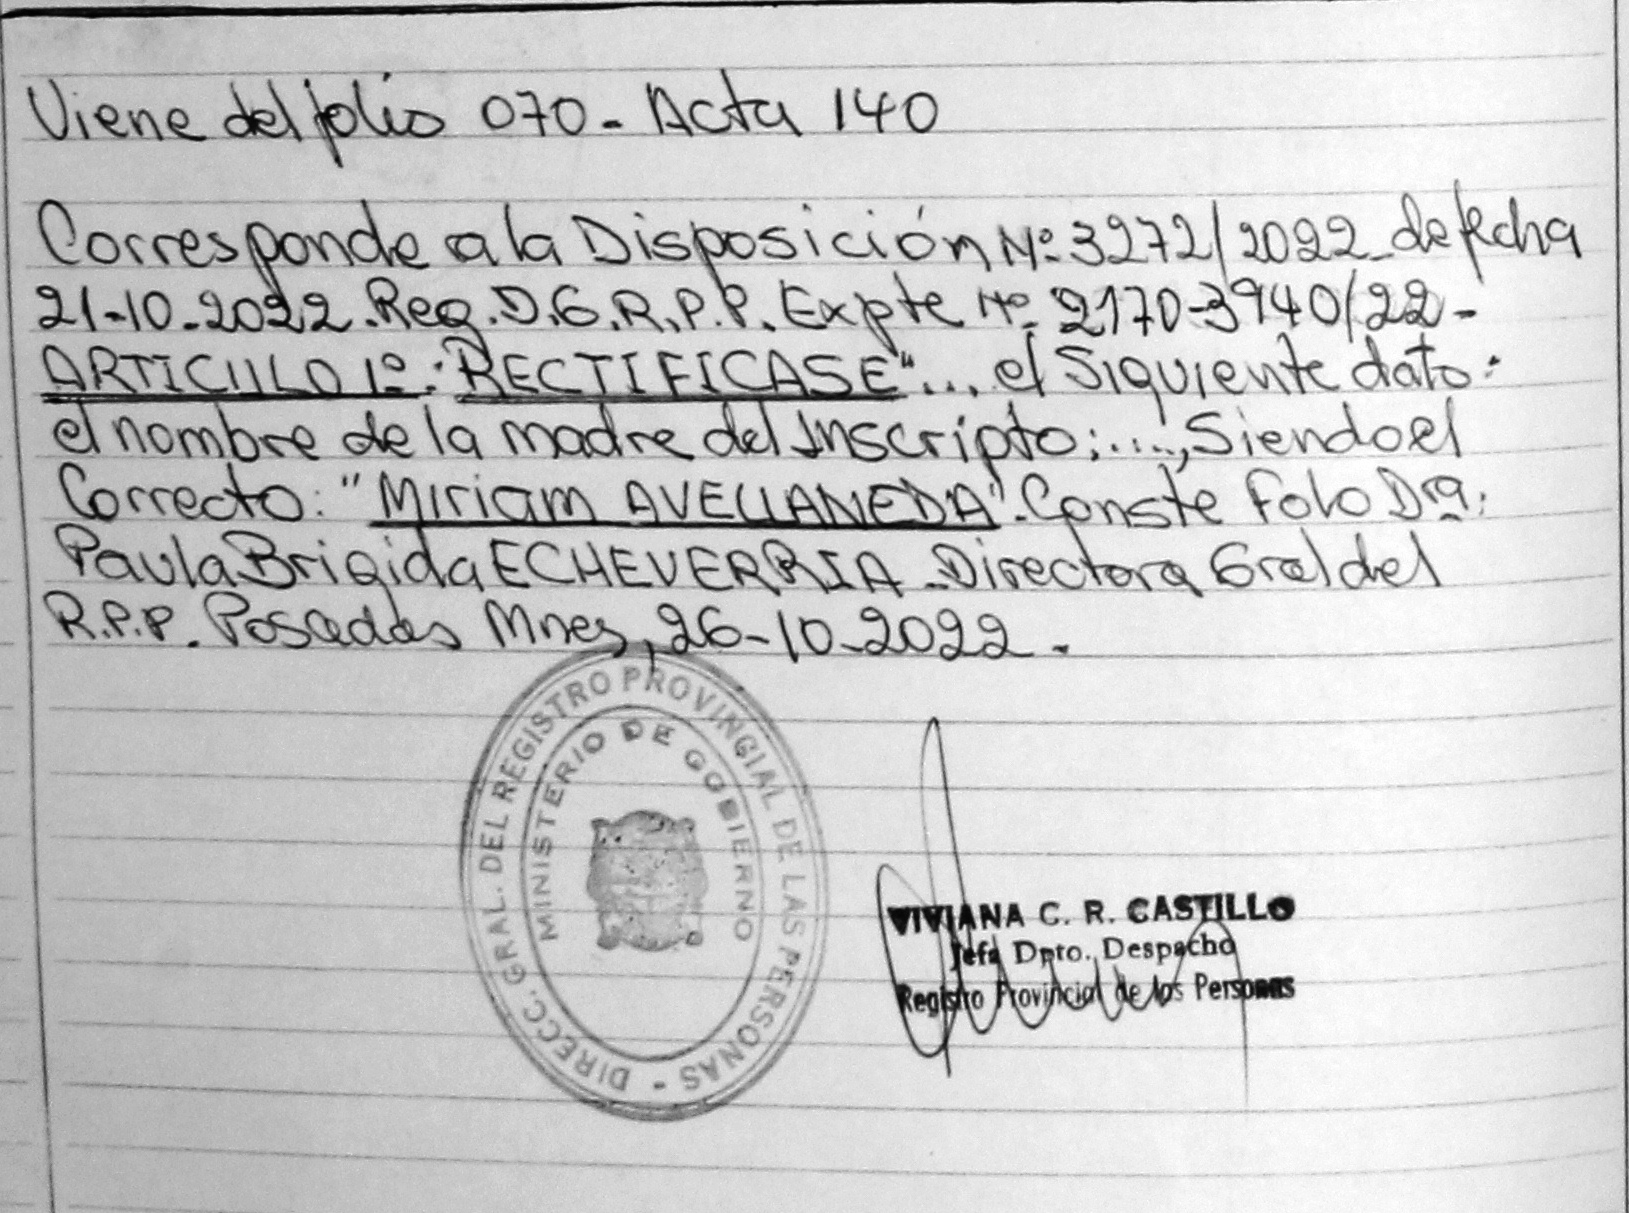 Viene del folio 070 - Acta 140
Corresponde a la Disposición Nº 3272/2022 - de fecha
21-10-2022. Reg. D.G.R.P.P. Expte Nº 2170-3940/22 -
ARTICULO 1º: RECTIFICASE "... el Siguiente dato:
el nombre de la madre del Inscripto;..., Siendo el
Correcto: "Miriam AVELLANEDA". Conste Fdo Dra.
Paula Brigida ECHEVERRIA - Directora Gral del
R.P.P. Posadas Mnes, 26-10-2022.
DIRECC. GRAL. DEL REGISTRO PROVINCIAL DE LAS PERSONAS -
MINISTERIO DE GOBIERNO
VIVIANA C. R. CASTILLO
Jefa Dpto. Despacho
Registro Provincial de las Personas